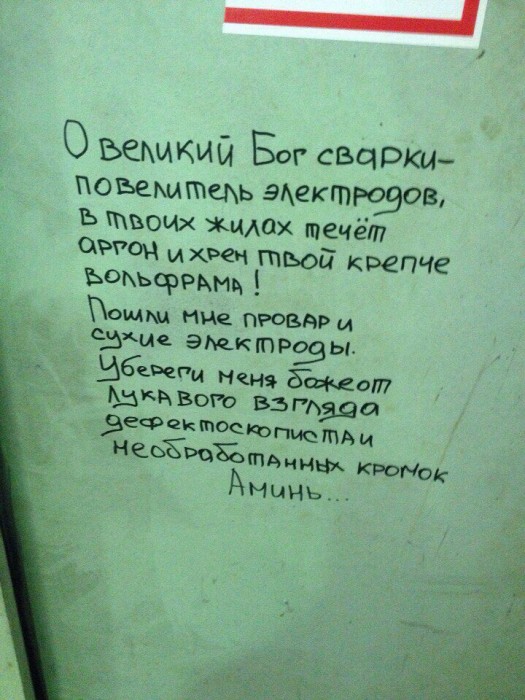 О великий Бог сварки-
повелитель электродов,
в твоих жилах течёт
аргон и хрен твой крепче
вольфрама!
Пошли мне провар и
сухие электроды.
Убереги меня боже от
лукавого взгляда
дефектоскописта и
необработанных кромок
Аминь...